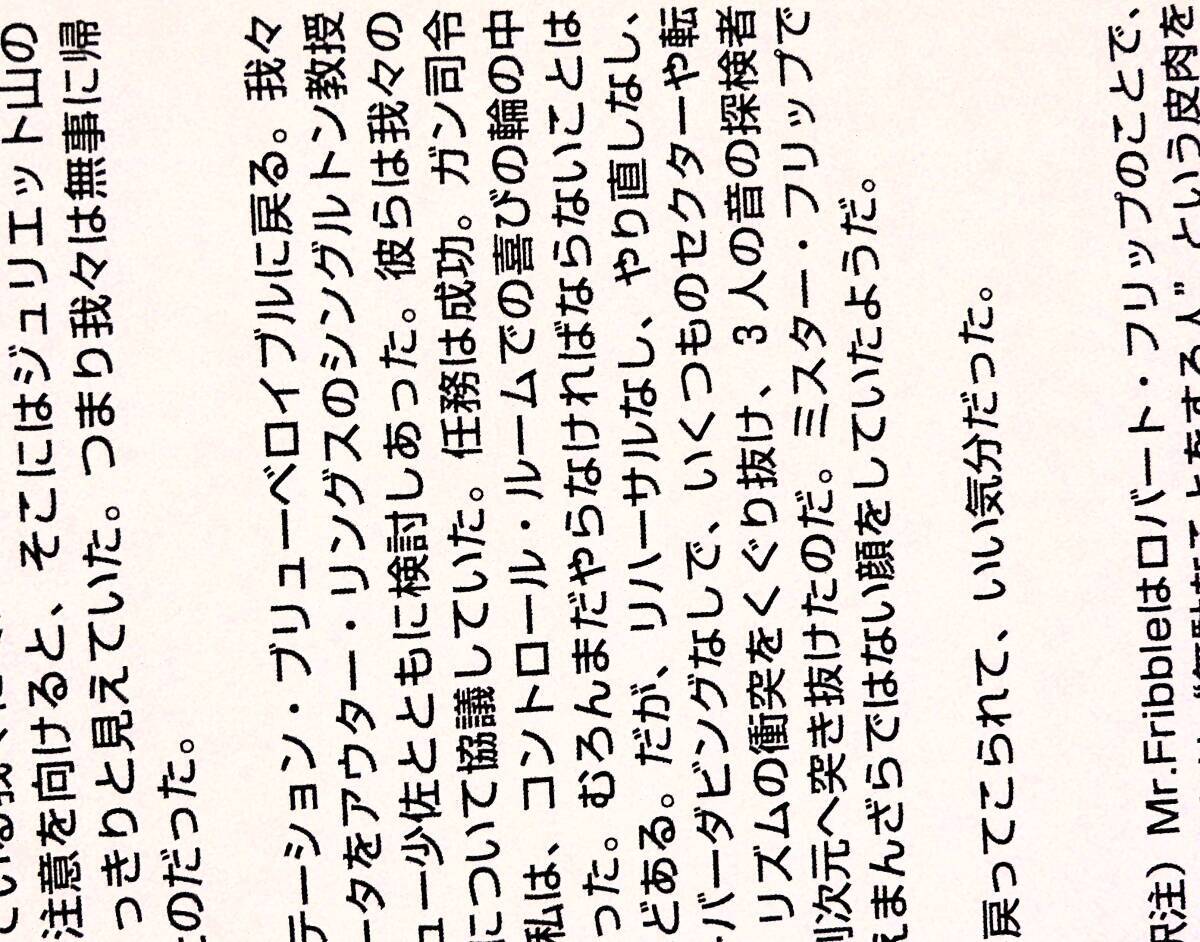 注意を向けると、そこにはジュリエット山の
っきりと見えていた。つまり我々は無事に帰
のだった。
テーション・ブリューベロイブルに戻る。我々
ータをアウター・リングスのシングルトン教授
ュー少佐とともに検討しあった。彼らは我々の
について協議していた。任務は成功。ガン司令
私は、コントロール・ルームでの喜びの輪の中
った。むろんまだやらなければならないことは
どある。だが、リハーサルなし、やり直しなし、
ーバーダビングなしで、いくつものセクターや転
リズムの衝突をくぐり抜け、3人の音の探検者
別次元へ突き抜けたのだ。ミスター・フリップで
えまんざらではない顔をしていたようだ。
戻ってこられて、いい気分だった。
訳注）Mr.Fribbleはロバート・フリップのことで、
ことをする人”という皮肉を